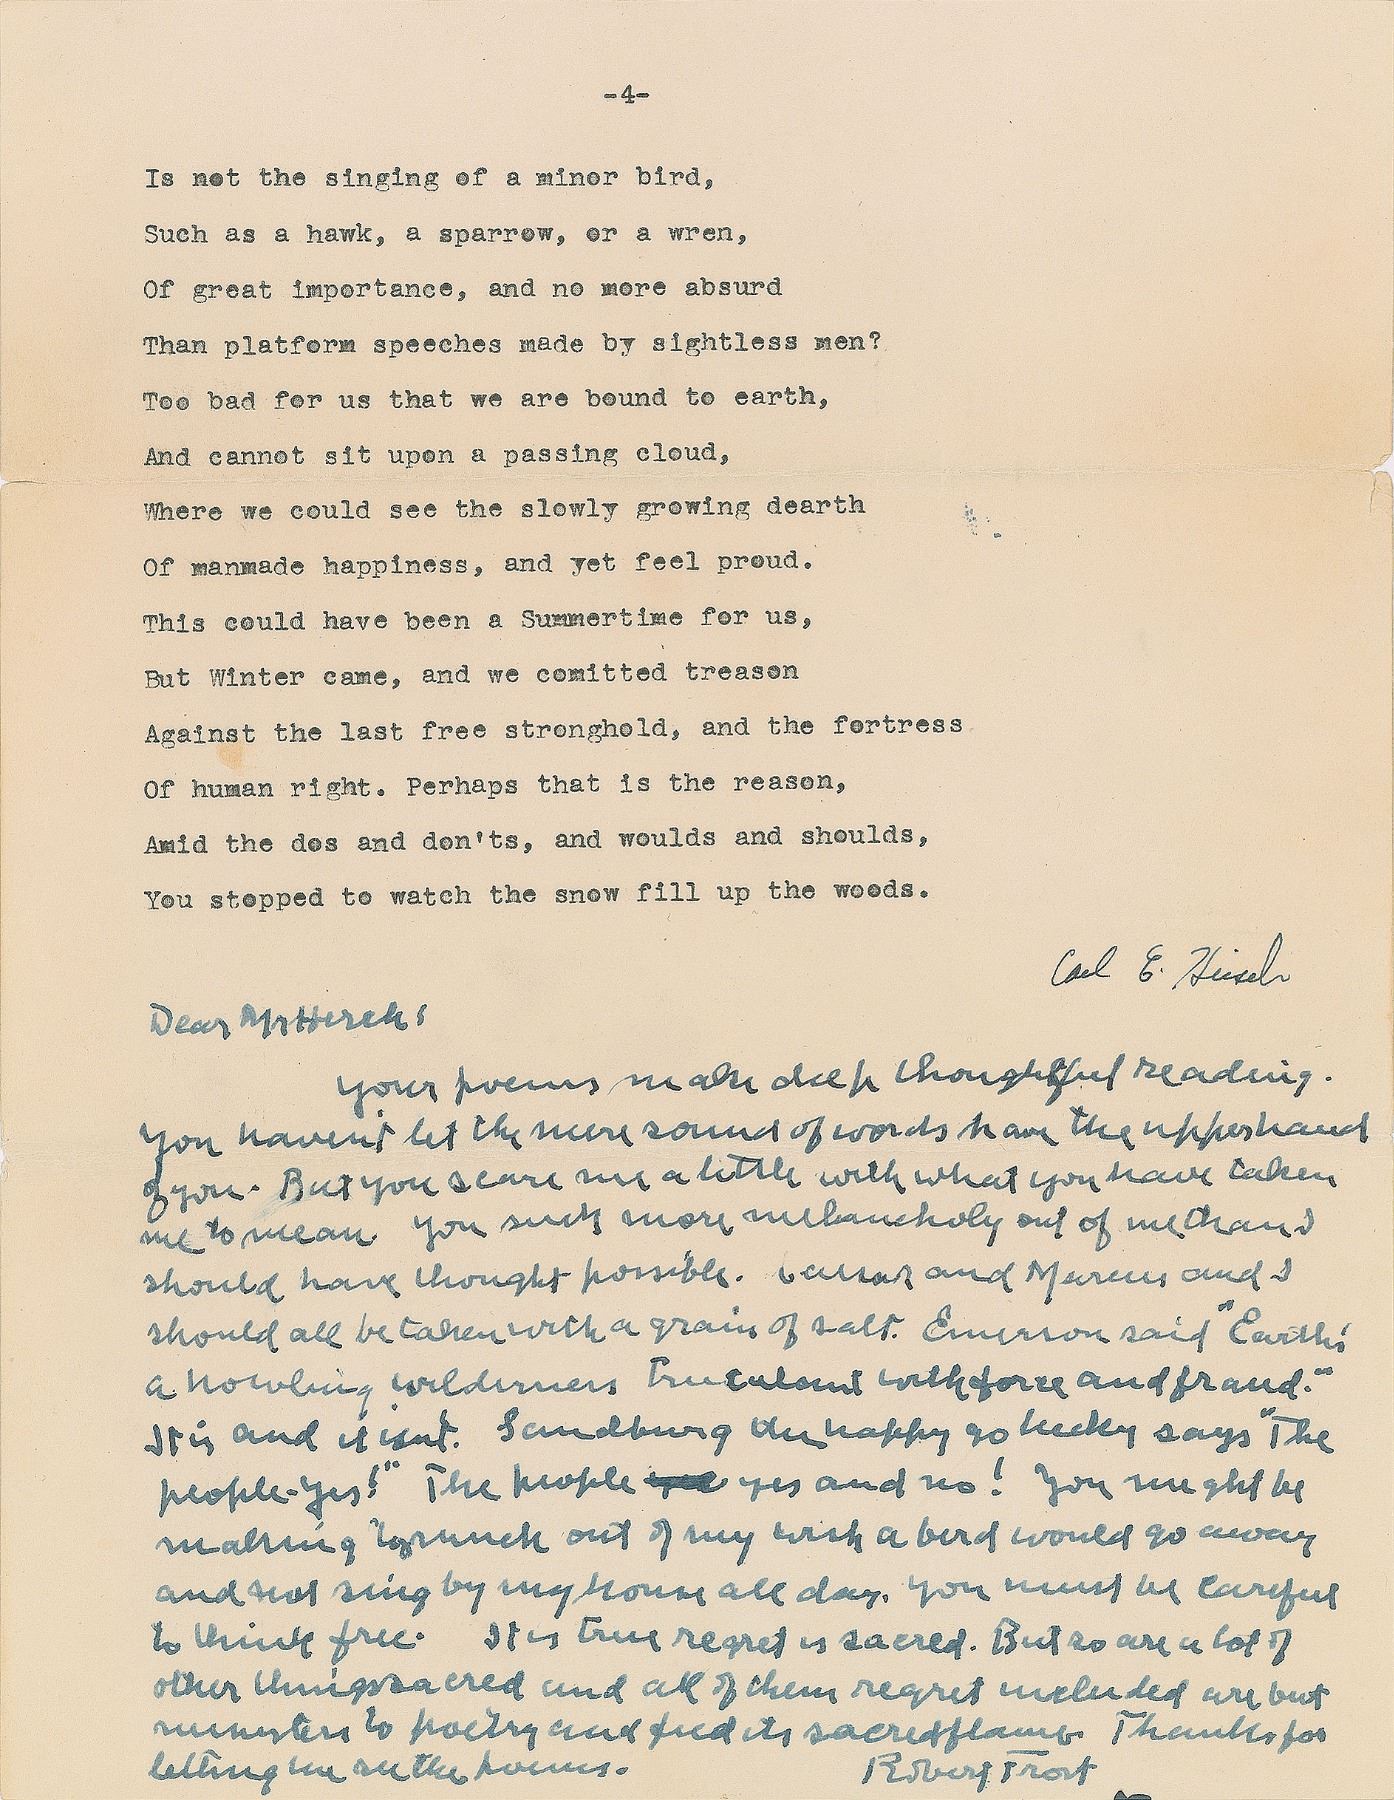 -4-
Is not the singing of a minor bird,
Such as a hawk, a sparrow, or a wren,
Of great importance, and no more absurd
Than platform speeches made by sightless men?
Too bad for us that we are bound to earth,
And cannot sit upon a passing cloud,
Where we could see the slowly growing dearth
Of manmade happiness, and yet feel proud.
This could have been a Summertime for us,
But Winter came, and we comitted treason
Against the last free stronghold, and the fortress
Of human right. Perhaps that is the reason,
Amid the dos and don'ts, and woulds and shoulds,
You stopped to watch the snow fill up the woods.
Carl E. Hirsch
Dear Mr Hersch:
Your poems make deep thoughtful reading.
You haven't let the mere sound of words have the upperhand
of you. But you scare me a little with what you have taken
me to mean. You suck more melancholy out of me than I
should have thought possible. and Marcus and I
should all be taken with a grain of salt. Emerson said "Earth's
a howling wilderness truculent with force and fraud."
It is and it isnt. Sandburg the happy go lucky says "The
people-yes!" The people yes and no! You might be
making too much out of my wish a bird would go away
and not sing by my house all day. You must be careful
to think free. It is true regret is sacred. But so are a lot of
other things sacred and all of them regret included are but
ministers to poetry and feed its sacred flame. Thanks for
letting me see the poems.
Robert Frost